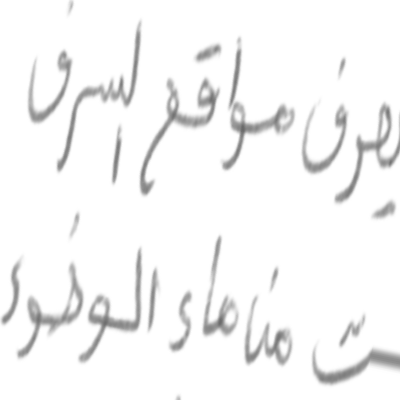 يعرف مواقع السرف
منا ماء الوضوء